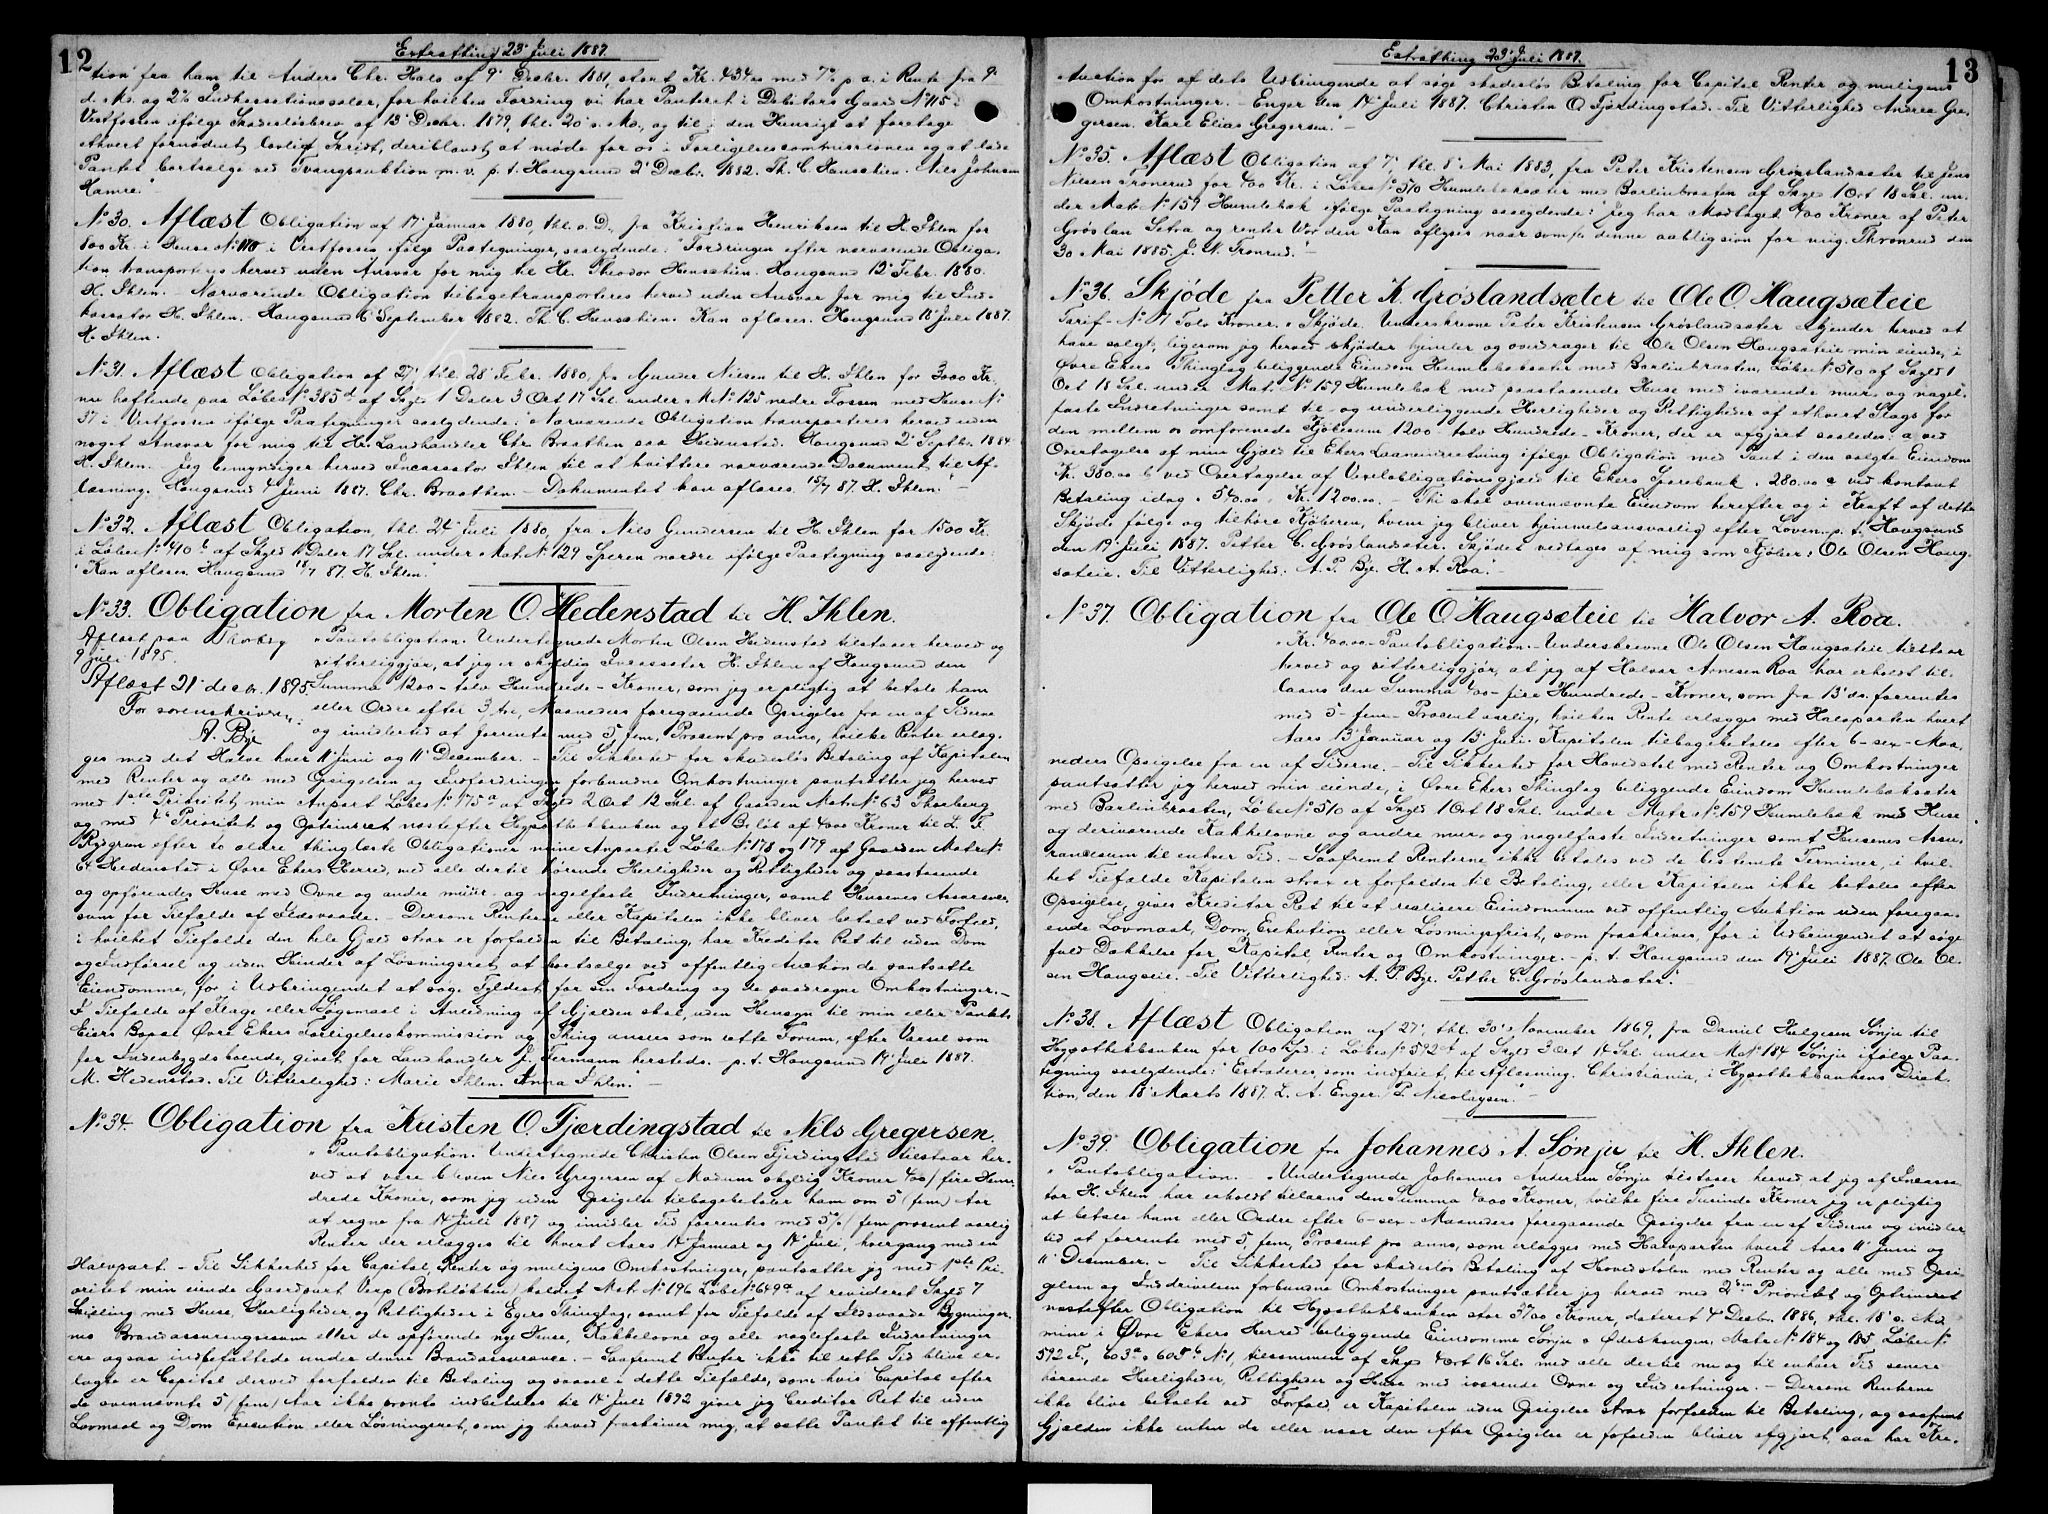 12
Extrathing 23' Juli 1887.
tion fra ham til Anders Chr. Hals af 9' Decbr. 1881, stort Kr. 434 med 7% p. a. i Rente fra 9'
d. Md. og 2% Indkassationssalær, for hvilken Fordring vi har Panteret i Debitors Gaard No 115 i
Vestfossen ifølge Skadesløsbrev af 13' Decbr. 1879, thl. 20' s. Md., og til i den Henseende at foretage
ethvert fornødent lovligt Skridt, deriblandt at møde for os i Forligelsescommissionen og at lade
Pantet bortsælge ved Tvangsauktion m. v. p. t. Hougsund 2' Decbr. 1882. Th. C. Hensstien. Nils Johnsen
Hamre."
No 30. Aflæst Obligation af 17' Januar 1880, thl. s. D., fra Kristian Henriksen til H. Ihlen for
800 Kr. i Huse No 118 i Vestfossen ifølge Paategninger, saalydende: "Fordringen efter nærværende Obliga-
tion transporteres herved uden Ansvar for mig til Hr. Theodor Hensstien. Hougsund 12' Febr. 1880.
H. Ihlen. – Nærværende Obligation tilbagetransporteres herved uden Ansvar for mig til Ind-
kassator H. Ihlen. Hougsund 6' September 1882. Th. C. Hensstien. Kan aflæses. Hougsund 18' Juli 1887.
H. Ihlen.
No 31. Aflæst Obligation af 27' thl. 28' Febr. 1880, fra Gunder Nilsen til H. Ihlen for 3000 Kr.
nu heftende paa Løbe No 385d af Skyld 1 Daler 3 Ort 17 Skl. under M No 125 nedre Fossen med Huse No
37 i Vestfossen ifølge Paategninger saalydende: "Nærværende Obligation transporteres herved uden
noget Ansvar for mig til Hr. Landhandler Chr. Braathen paa Hedenstad. Hougsund 2' Septbr. 1884
H. Ihlen. – Jeg bemyndiger herved Incassator Ihlen til at kvittere nærværende Document til Af-
læsning. Hougsund 4' Juni 1887. Chr. Braathen. – Dokumentet kan aflæses. 15/7 87. H. Ihlen." –
No 32. Aflæst Obligation, thl. 24' Juli 1880, fra Nils Gundersen til H. Ihlen for 1500 Kr.
i Løbe No 410b af Skyld 1 Daler 17 Skl. under Mat. No 129 Speren nordre ifølge Paategning saalydende:
"Kan aflæses. Hougsund 18/7 87. H. Ihlen."
No 33. Obligation fra Morten O. Hedenstad til H. Ihlen.
Aflæst paa Thorberg
9 juli 1895.
Aflæst 21' decbr. 1895
For sorenskriveren:
A. Bye
"Pantobligation. Undertegnede Morten Olsen Hedenstad tilstaaer herved og
vitterliggjør, at jeg er skyldig Incassator H. Ihlen af Hougsund den
Summa 1200 – tolv Hundrede – Kroner, som jeg er pligtig at betale ham
eller Ordre efter 3 tre, Maaneders foregaaende Opsigelse fra en af Siderne
og imidlertid at forrente med 5, fem, Procent pro anno, hvilke Renter erlæg-
ges med det Halve hver 11' Juni og 11' December. – Til Sikkerhed for skadesløs Betaling af Kapitalen
med Renter og alle med Opsigelsen og Indfordringen forbundne Omkostninger pantsætter jeg herved
med 1ste Prioritet min Anpart Løbe No 175a af Skyld 2 Ort 12 Skl. af Gaarden Mat No 63 Thorberg
og med 4' Prioritet og Optrinsret næstefter Hypothekbanken og et Beløb af 4000 Kroner til L. F.
Rosgrum efter to ældre thinglæste Obligationer mine Anparter Løbe No 178 og 179 af Gaarden Mat No
64 Hedenstad i Øvre Ekers Herred, med alle dertil hørende Herligheder og Rettigheder og paastaaende
og opførendes Huse med Ovne og andre muur- og nagelfaste Indretninger, samt Husenes Assurance-
sum for Tilfælde af Ildsvaade. – Dersom Renterne eller Kapitalen ikke bliver betalt ved Forfald,
i hvilket Tilfælde den hele Gjæld strax er forfalden til Betaling, har Kreditor Ret til uden Dom
og Indførsel og uden Hinder af Løsningsret at bortsælge ved offentlig Auction de pantsatte
Eiendomme, for i Udbringendet at søge Fyldest for sin Fordring og de paadragne Omkostninger. –
I Tilfælde af Klage eller Søgsmaal i Anledning af Gjælden skal, uden Hensyn til min eller Pantets
Eiers Bopæl Øvre Ekers Forligelseskommission og Thing ansees som rette Forum, efter Varsel som
for Indenbygdsboende, givet for Landhandler J. Fermann hersteds. – p. t. Hougsund 14' Juli 1887.
M. Hedenstad. Til Vitterlighed: Marie Ihlen. Anna Ihlen." –
No 34. Obligation fra Kristen O. Fjærdingstad til Nils Gregersen.
"Pantobligation. Undertegnede Christen Olsen Fjerdingstad tilstaar her-
ved at være bleven Nils Gregersen af Modum skyldig Kroner 400/ fire Hun-
drede Kroner, som jeg uden Opsigelse tilbagebetaler ham om 5 (fem) Aar
at regne fra 14' Juli 1887 og imidler Tid forrentes med 5%/ fem procent aarlig
Renter der erlægges til hvert Aars 14' Januar og 14' Juli, hvergang med en
Halvpart. – Til Sikkerhed for Capital, Renter og muligens Omkostninger, pantsætter jeg med 1ste Pri-
oritet min eiende Gaardpart Verp (Brækløbben) kaldet Mat. No 196 Løbe No 649a af revideret Skyld 7
Skilling med Huse, Herligheder og Rettigheder i Egers Thinglag, samt for Tilfælde af Ildsvaade Bygninger-
nes Brandassurancesum eller de opførende nye Huse, Kakkelovne og alle naglefaste Indretninger
ere ogsaa indbefattede under denne Brandassurance. – Saafremt Renter ikke til rette Tid blive er-
lagte er Capital derved forfalden til Betaling og saavel i dette Tilfælde, som hvis Capital efter
de ovennævnte 5 (fem) Aar ikke promte indbetales til 14' Juli 1892 giver jeg Creditor Ret til uden
Lovmaal og Dom Execution eller Løsningsret, som jeg herved fraskriver mig, at sætte Pantet til offentlig
13
Extrathing 23' Juli 1887.
Auction for af dets Udbringende at søge skadesløs Betaling for Capital Renter og muligens
Omkostninger. – Enger den 14' Juli 1887. Christen O Fjerdingstad. – Til Vitterlighed Andrea Gre-
gersen. Karl Elias Gregersen." –
No 35. Aflæst Obligation af 7', thl. 8' Mai 1883, fra Peter Kristensen Grøslandsæter til Jens
Nilsen Tronerud for 400 Kr. i Løbe No 510 Humlebæksæter med Barliebraaten af Skyld 1 Ort 18 Skl. un-
der Mat. No 159 Humlebæk ifølge Paategning saalydende: "Jeg har Modtaget 400 Kroner af Peter
Grøslan Setra og renter Vor den Kan aflyses naar som he denne aabligsion for mig. Thronrud den
30 Mai 1885. J. N. Tronrud." –
No 36. Skjøde fra Petter K. Grøslandsæter til Ole O. Haugsæteie
Tarif- No 7 Tolv Kroner. "Skjøde. Underskrevne Peter Kristensen Grøslandsæter erkjender herved at
have solgt, ligesom jeg herved skjøder hjemler og overdrager til Ole Olsen Haugsæteie min eiende, i
Øvre Ekers Thinglag beliggende Eiendom Humlebæksæter med Barliebraaten, Løbe No 510 af Skyld 1
Ort 18 Skl. under Mat. No 159 Humlebæk med paastaaende Huse med iværende mur- og nagel-
faste Indretninger samt til- og underliggende Herligheder og Rettigheder af ethvert Slags for
den mellem os omforenede Kjøbesum 1200 – tolv Hundrede – Kroner, der er afgjort saaledes: a ved
Overtagelse af min Gjæld til Ekers Laaneindretning ifølge Obligation med Pant i den solgte Eiendom
Kr. 380.00 b ved Overtagelse af Vexelobligationsgjæld til Ekers Sparebank " 280.00 c ved kontant
Betaling idag " 540.00, Kr. 1200.00. – Thi skal ovennævnte Eiendom herefter og i Kraft af dette
Skjøde følge og tilhøre Kjøberen, hvem jeg bliver hjemmelsansvarlig efter Loven. p. t. Hougsund
den 19' Juli 1887. Petter C. Grøslandsæter. Skjødet vedtages af mig som Kjøber: Ole Olsen Haug-
sæteie. Til Vitterlighed: A. P. Bye. H. A. Roa." –
No 37. Obligation fra Ole O. Haugsæteie til Halvor A. Roa.
"Kr. 400.00 – Pantobligation. – Underskrevne Ole Olsen Haugsæteie tilstaar
herved og vitterliggjør, at jeg af Halvor Arnesen Roa har erholdt til-
laans den Summa 400 – fire Hundrede – Kroner, som fra 13' ds. forrentes
med 5 – fem – Procent aarlig, hvilken Rente erlægges med Halvparten hvert
Aars 13' Januar og 13' Juli. Kapitalen tilbagebetales efter 6 – sex – Maa-
neders Opsigelse fra en af Siderne. – Til Sikkerhed for Hovedstol med Renter og Omkostninger
pantsætter jeg herved min eiende, i Øvre Ekers Thinglag beliggende Eiendom Humlebæksæter
med Barliebraaten, Løbe No 510 af Skyld 1 Ort 18 Skl. under Matr No 159 Humlebæk med Huse
og deriværende Kakkelovne og andre mur- og nagelfaste Indretninger samt Husenes Assu-
rancesum til enhver Tid. – Saafremt Renterne ikke betales ved de bestemte Terminer, i hvil-
ket Tilfælde Kapitalen strax er forfalden til Betaling, eller Kapitalen ikke betales efter
Opsigelse, gives Kreditor Ret til at realisere Eiendommen ved offentlig Auktion uden foregaa-
ende Lovmaal, Dom, Exekution eller Løsningsfrist, som fraskrives, for i Udbringendet at søge
fuld Dækkelse for Kapital, Renter og Omkostninger. – p. t. Hougsund den 19' Juli 1887. Ole Ol-
sen Haugseie. Til Vitterlighed: A. P. Bye. Petter C. Grøslandsæter." –
No 38. Aflæst Obligation af 27', thl. 30' November 1869, fra Daniel Helgesen Sønju til
Hypothekbanken for 100 Spd. i Løbe No 592d af Skyld 3 Ort 14 Skl. under M No 184 Sønju ifølge Paa-
tegning saalydende: "Extraderes, som indfriet, til Aflæsning. Christiania, i Hypothekbankens Direk-
tion, den 18' Marts 1887. L. A. Enger. P. Nicolaysen." –
No 39. Obligation fra Johannes A. Sønju til H. Ihlen.
"Pantobligation. – Undertegnede Johannes Andersen Sønju tilstaaer herved at jeg af Incassa-
tor H. Ihlen har erholdt tillaans den Summa 4000 Kroner, hvilke fire Tusinde Kroner jeg er pligtig
at betale ham eller Ordre efter 6 – sex – Maaneders foregaaende Opsigelse fra en af Siderne og imidler-
tid at forrente med 5 fem, Procent pro anno, som erlægges med Halvparten hvert Aars 11' Juni og
11' December. – Til Sikkerhed for skadesløs Betaling af Hovedstolen med Renter og alle med Opsi-
gelsen og Inddrivelsen forbundne Omkostninger pantsætter jeg herved med 2den Prioritet og Optrinsret
næstefter Obligation til Hypothekbanken stor 3700 Kroner, dateret 4' Decbr. 1886, thl. 18' s. Md.
mine i Øvre Ekers Herred beliggende Eiendomme Sønju o Ødeskougen, Matr No 184 og 185 Løbe No
592 F., 603a o 605b No 1, tilsammen af Skyld 4 Ort 16 Skl. med alle dertil nu og til enhver Tid senere
hørende Herligheder, Rettigheder og Huse med iværende Ovne og Indretninger. – Dersom Renterne
ikke blive betalte ved Forfald, er Kapitalen uden Opsigelse strax forfalden til Betaling, og saafremt
Gjælden ikke enten da eller naar den efter Opsigelse er forfalden bliver afgjort, saa har Kre-